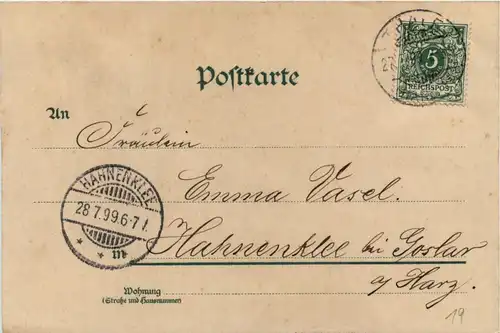 THALE
27
5
REICHSPOST
Postkarte
An
Fräulein
Emma Vasel.
HAHNENKLEE
28.7.99.6-7 N.
Hahnenklee bei Goslar
a/Harz.
Wohnung
(Straße und Hausnummer)
19